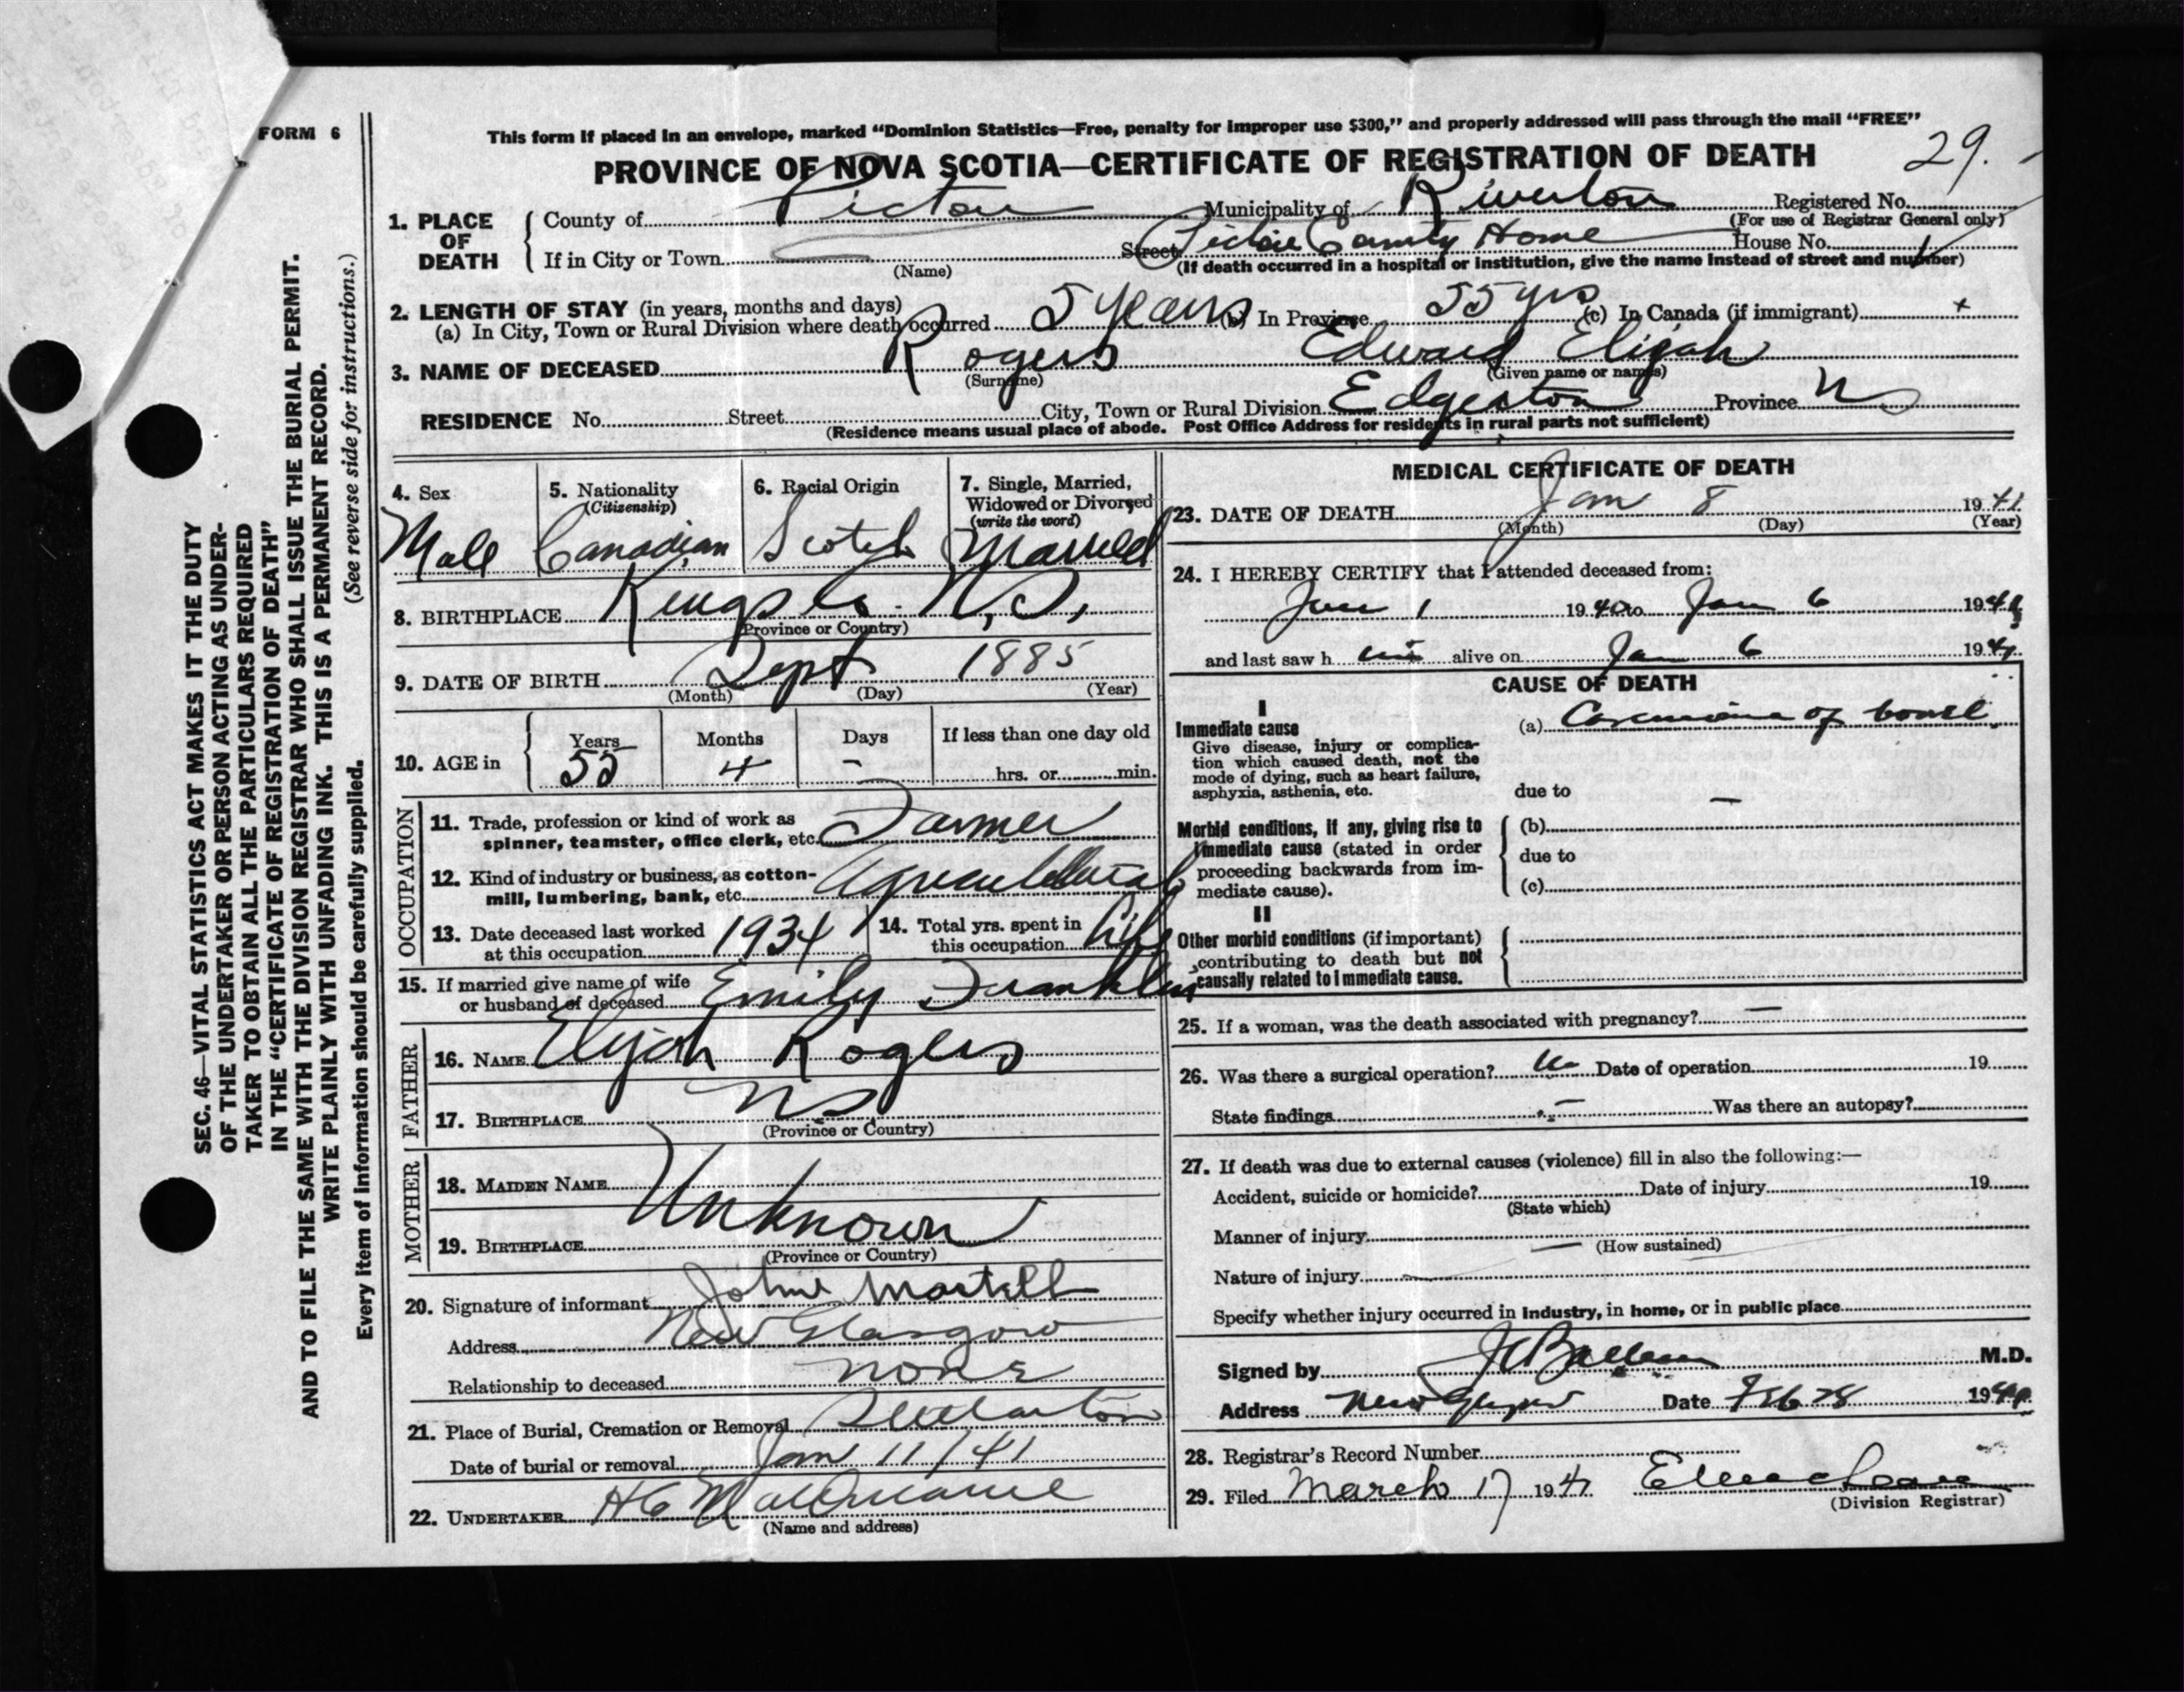 FORM 6
This form if placed in an envelope, marked “Dominion Statistics—Free, penalty for improper use $300,” and properly addressed will pass through the mail “FREE”
PROVINCE OF NOVA SCOTIA—CERTIFICATE OF REGISTRATION OF DEATH
29.
1. PLACE OF DEATH
County of Pictou Municipality of Riverton Registered No.
(For use of Registrar General only)
If in City or Town Street Pictou County Home House No.
(Name) (If death occurred in a hospital or institution, give the name instead of street and number)
2. LENGTH OF STAY (in years, months and days)
(a) In City, Town or Rural Division where death occurred 5 years (b) In Province 55 yrs (c) In Canada (if immigrant)
3. NAME OF DECEASED Rogers Edward Elijah
(Surname) (Given name or names)
RESIDENCE No. Street City, Town or Rural Division Province NS
(Residence means usual place of abode. Post Office Address for residents in rural parts not sufficient)
4. Sex
Male
5. Nationality
(Citizenship)
Canadian
6. Racial Origin
Scotch
7. Single, Married,
Widowed or Divorced
(write the word)
Married
8. BIRTHPLACE Kings Co. N.S.
(Province or Country)
9. DATE OF BIRTH Sept 1885
(Month) (Day) (Year)
10. AGE in
Years Months Days If less than one day old
55 4 – hrs. or min.
OCCUPATION
11. Trade, profession or kind of work as
spinner, teamster, office clerk, etc. Farmer
12. Kind of industry or business, as cotton-
mill, lumbering, bank, etc. Agricultural
13. Date deceased last worked
at this occupation 1934
14. Total yrs. spent in
this occupation Life
15. If married give name of wife
or husband of deceased Emily Franklin
FATHER
16. NAME Elijah Rogers
17. BIRTHPLACE NS
(Province or Country)
MOTHER
18. MAIDEN NAME
Unknown
19. BIRTHPLACE
(Province or Country)
20. Signature of informant John Martell
Address New Glasgow
Relationship to deceased none
21. Place of Burial, Cremation or Removal Stellarton
Date of burial or removal Jan 11/41
22. UNDERTAKER H C
(Name and address)
MEDICAL CERTIFICATE OF DEATH
23. DATE OF DEATH Jan 8 1941
(Month) (Day) (Year)
24. I HEREBY CERTIFY that I attended deceased from:
1 1940 to Jan 6 1941
and last saw h im alive on Jan 6 1941
CAUSE OF DEATH
I
Immediate cause
Give disease, injury or complica-
tion which caused death, not the
mode of dying, such as heart failure,
asphyxia, asthenia, etc.
(a) Carcinoma of bowel
due to –
Morbid conditions, if any, giving rise to
immediate cause (stated in order
proceeding backwards from im-
mediate cause).
(b)
due to
(c)
II
Other morbid conditions (if important)
contributing to death but not
causally related to immediate cause.
25. If a woman, was the death associated with pregnancy? –
26. Was there a surgical operation? no Date of operation 19
State findings – Was there an autopsy?
27. If death was due to external causes (violence) fill in also the following:—
Accident, suicide or homicide? Date of injury 19
(State which)
Manner of injury
(How sustained)
Nature of injury
Specify whether injury occurred in industry, in home, or in public place
Signed by M.D.
Address New Glasgow Date Feb 28 19
28. Registrar's Record Number
29. Filed March 17 1941
(Division Registrar)
SEC. 46—VITAL STATISTICS ACT MAKES IT THE DUTY
OF THE UNDERTAKER OR PERSON ACTING AS UNDER-
TAKER TO OBTAIN ALL THE PARTICULARS REQUIRED
IN THE “CERTIFICATE OF REGISTRATION OF DEATH”
AND TO FILE THE SAME WITH THE DIVISION REGISTRAR WHO SHALL ISSUE THE BURIAL PERMIT.
WRITE PLAINLY WITH UNFADING INK. THIS IS A PERMANENT RECORD.
(See reverse side for instructions.)
Every item of information should be carefully supplied.